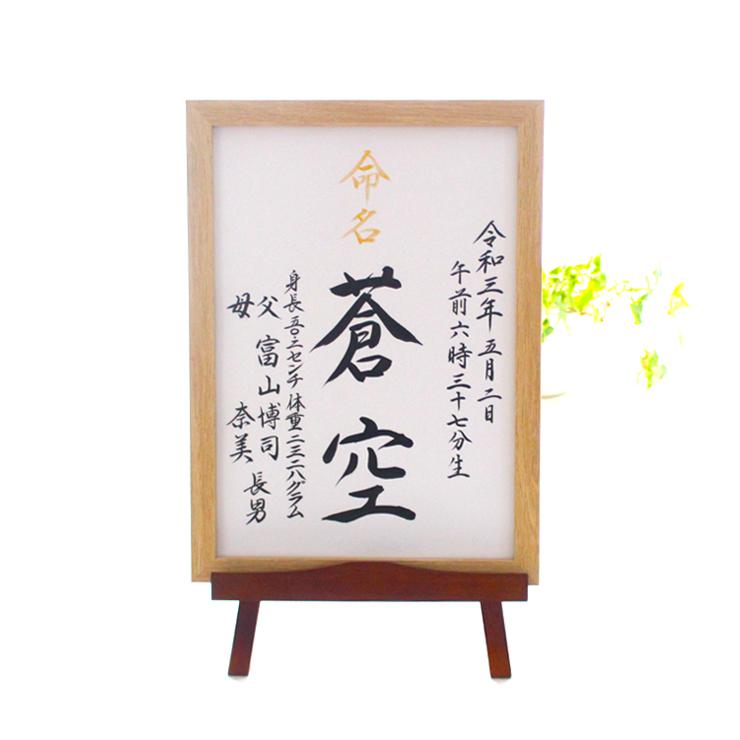 令和三年五月二日
午前六時三十七分生
命名
蒼空
身長五〇.二センチ 体重二三二八グラム
父 富山博司
母 奈美
長男